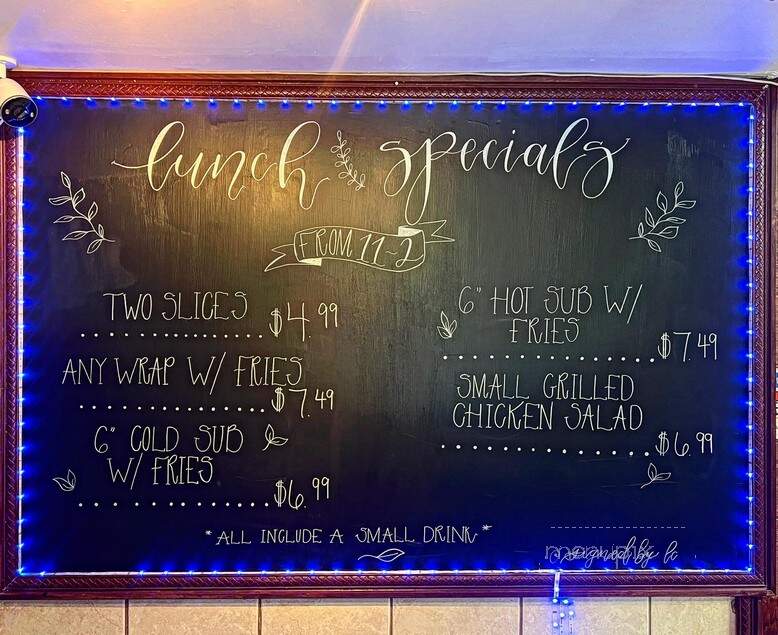 lunch specials
FROM 11-2
TWO SLICES
$4.99
ANY WRAP W/ FRIES
$7.49
6" COLD SUB
W/ FRIES
$6.99
6" HOT SUB W/
FRIES
$7.49
SMALL GRILLED
CHICKEN SALAD
$6.99
*ALL INCLUDE A SMALL DRINK*